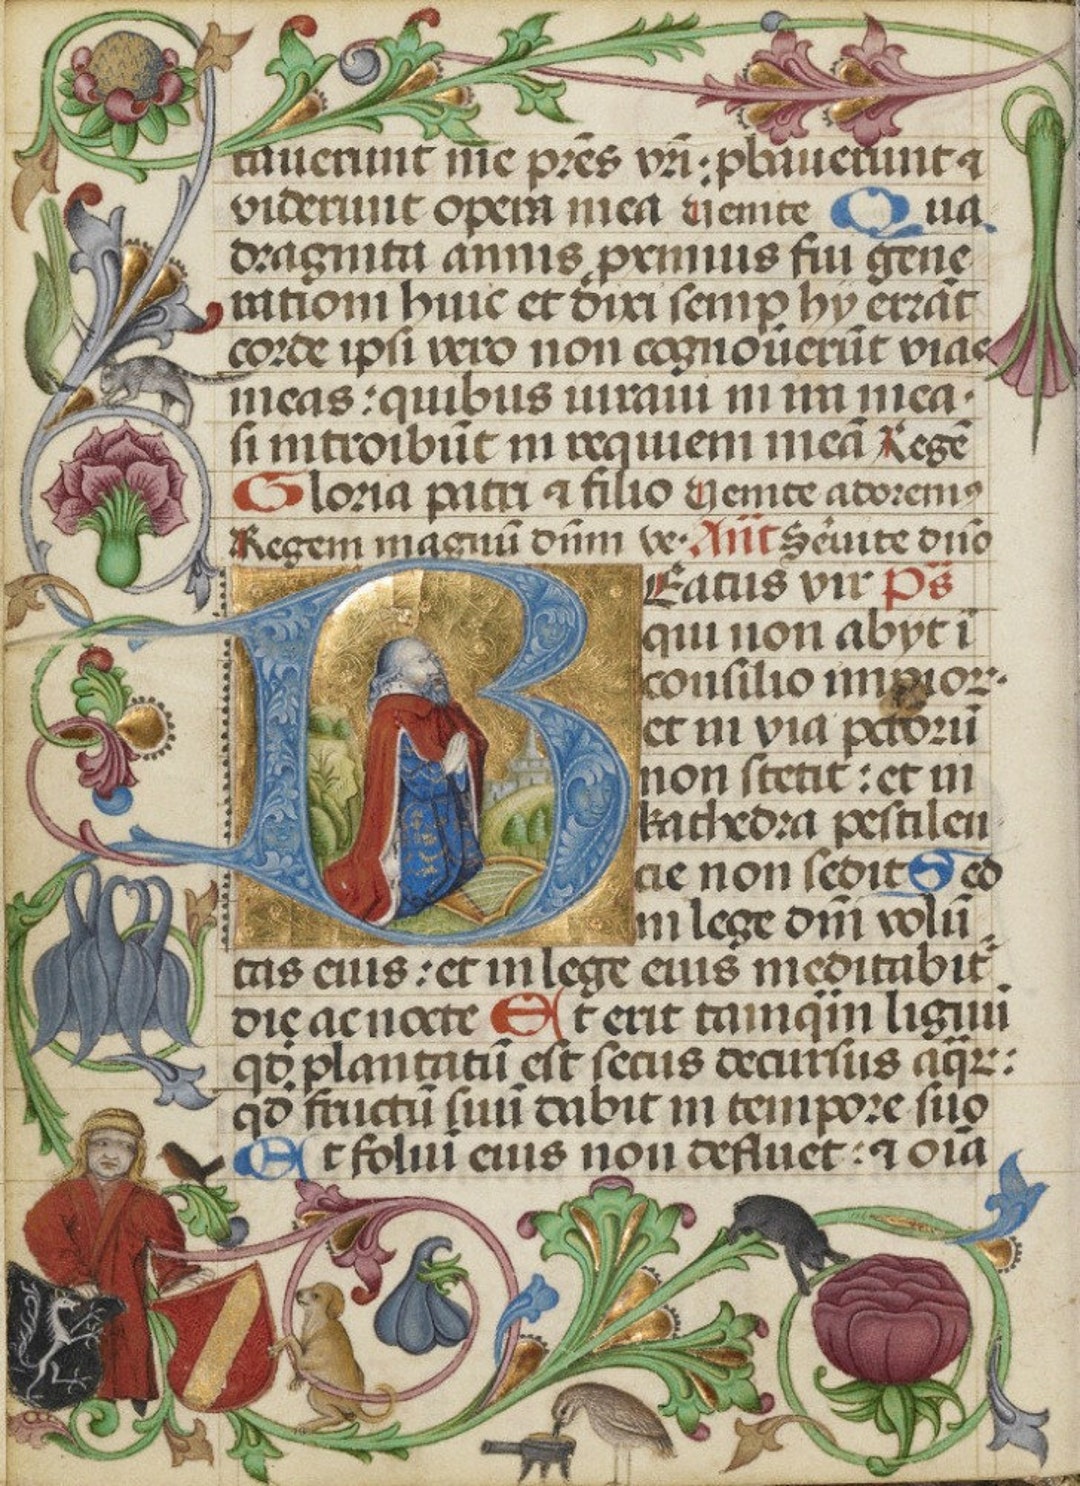 tauerunt me pr̄es vr̄i : ꝓbauerunt ⁊
viderunt opera mea Uenite Qua
draginta annis proximus fui gene
rationi huic et dixi semꝑ hij errāt
corde ipsi vero non cognouerūt vias
meas : quibus iuraui in ira mea ·
si introibūt in requiem meā Regē
Gloria patri ⁊ filio Uenite adoremꝰ
Regem magnū dn̄m ve · Añt Seruite dn̄o
Beatus vir Ps̄
qui non abijt ī
consilio impioꝝ ·
et in via pctorū
non stetit : et in
kathedra pestilen
cie non sedit Sed
in lege dn̄i volū
tas eius : et in lege eius meditabit̉
die ac nocte Et erit tamqͣm lignū
qd̉ plantatū est secus decursus aqͣꝝ :
qd̉ fructū suū dabit in tempore suo
Et foliū eius non defluet : ⁊ oīa